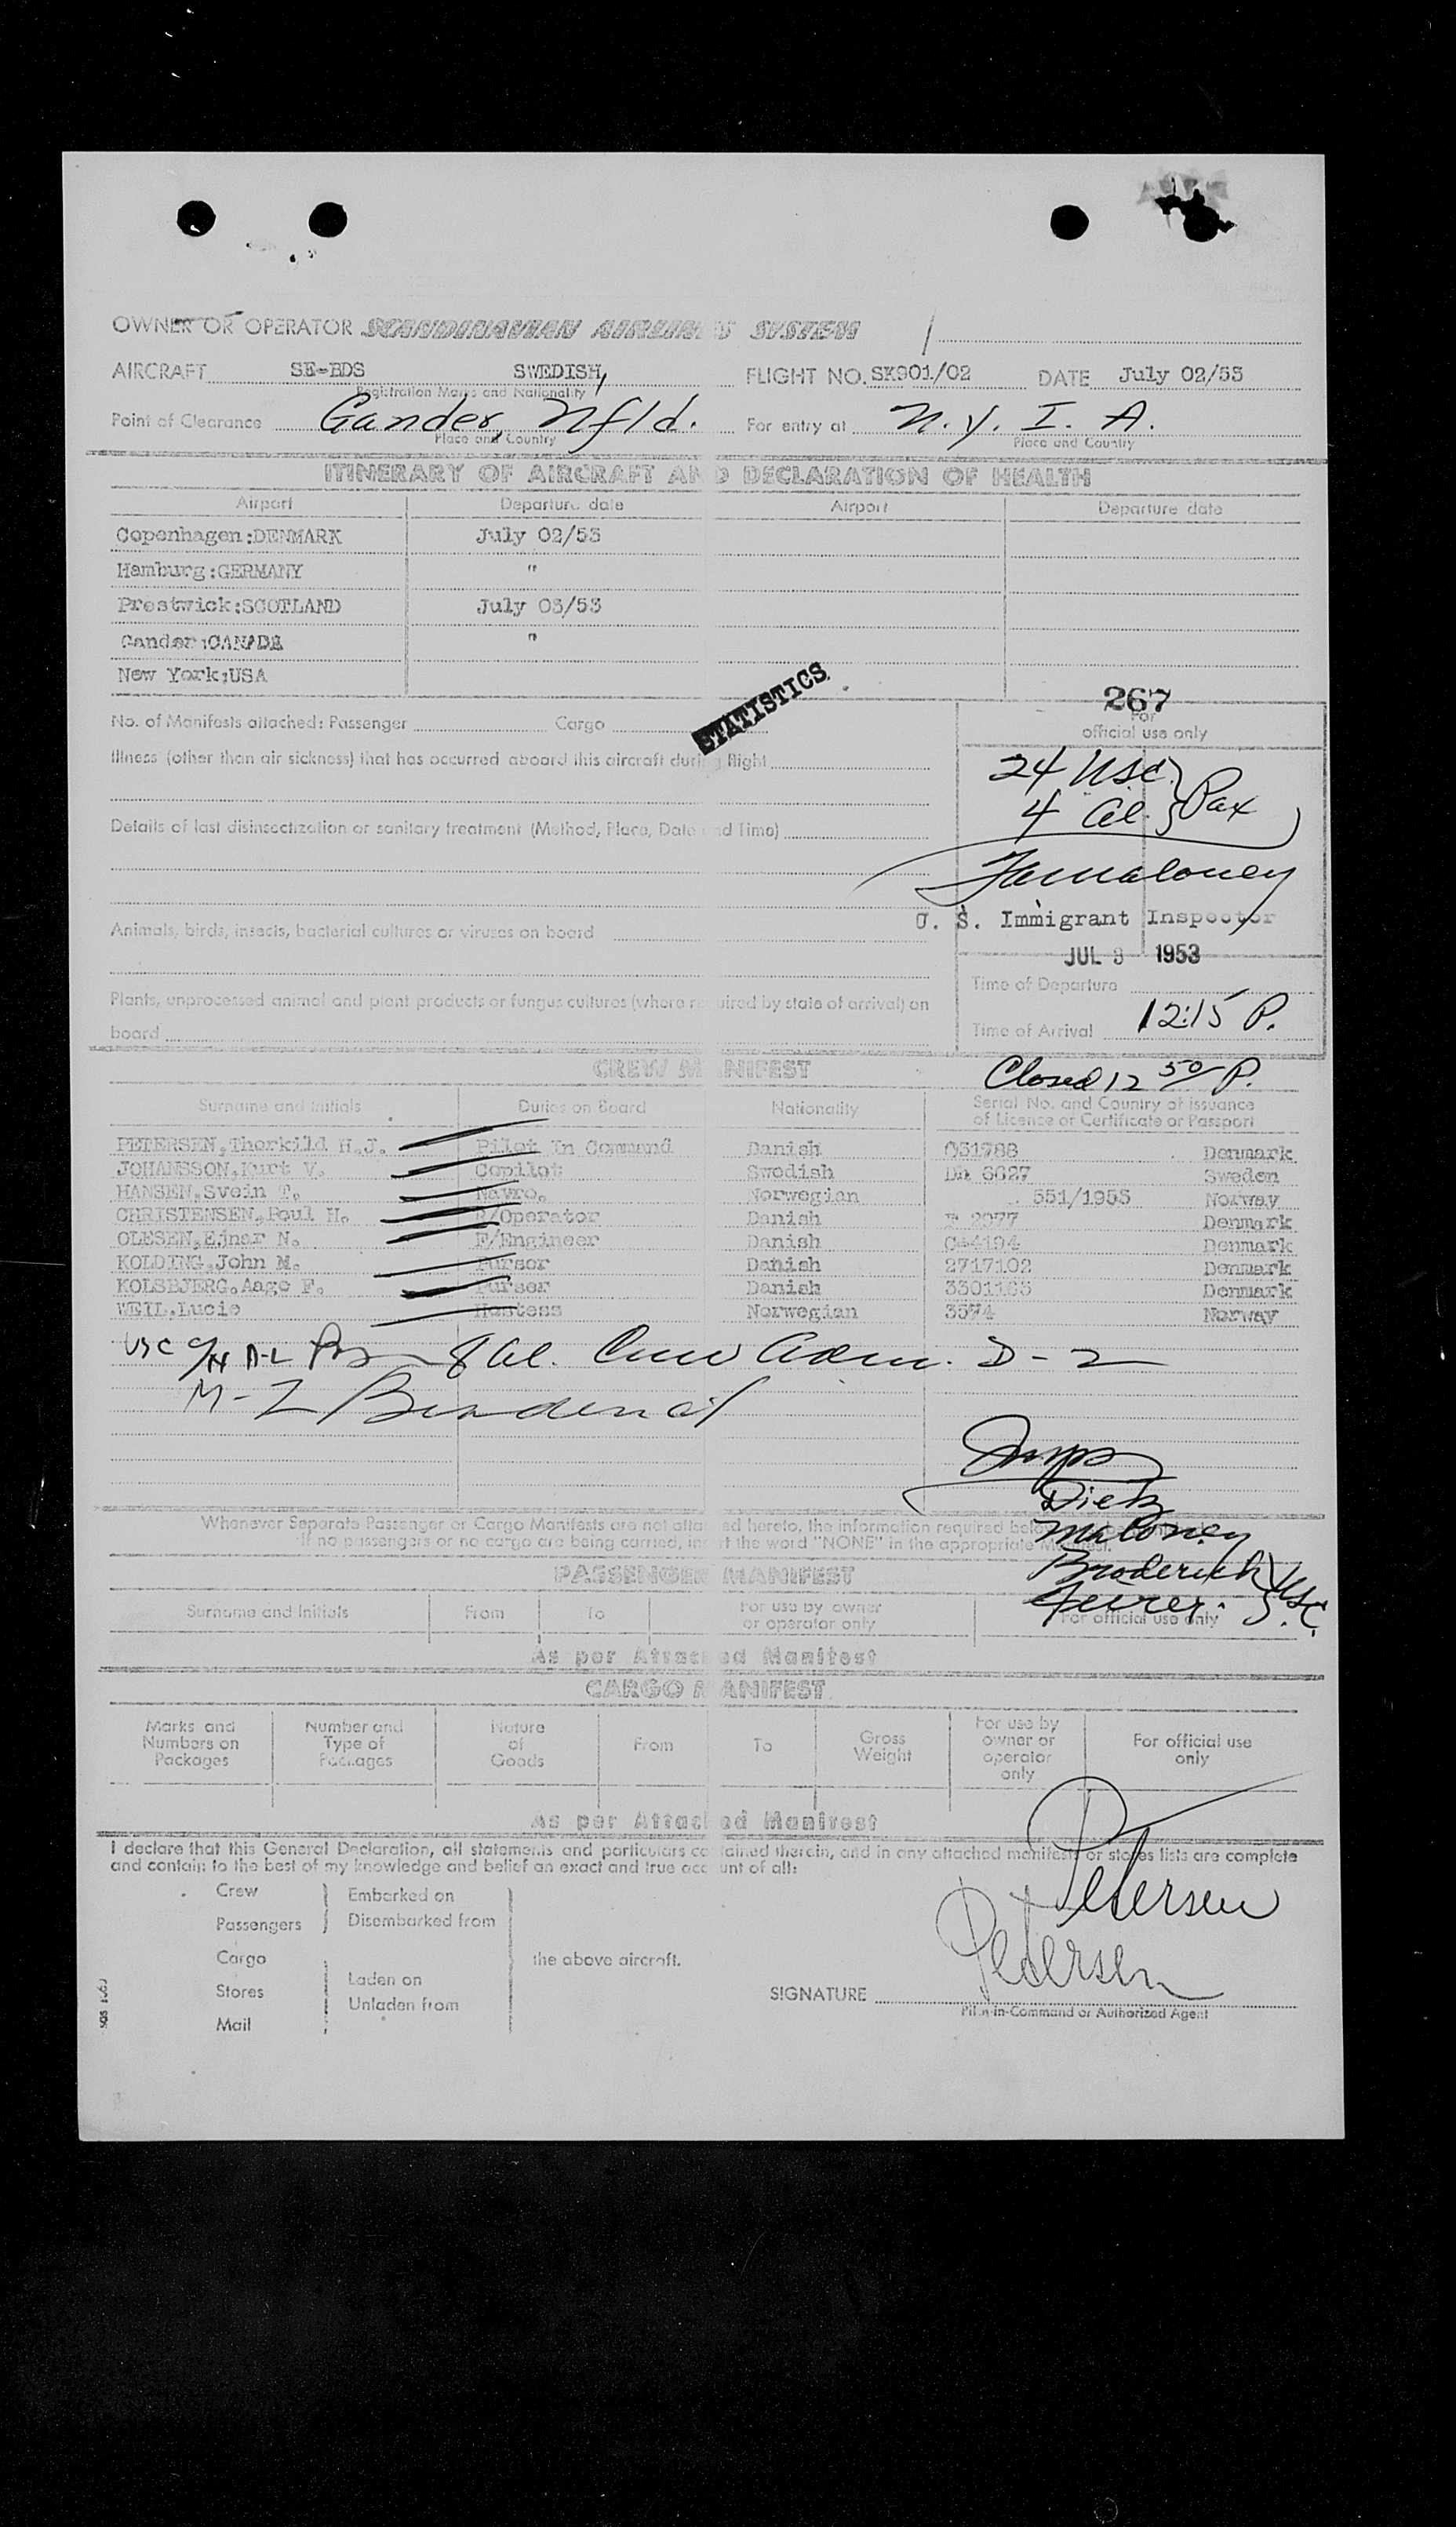 OWNER OR OPERATOR SCANDINAVIAN AIRLINES SYSTEM
AIRCRAFT SE-BDS SWEDISH FLIGHT NO. SK901/02 DATE July 02/53
Registration Marks and Nationality
Point of Clearance Gander, Nfld. For entry at N.Y. I. A.
Place and Country Place and Country
ITINERARY OF AIRCRAFT AND DECLARATION OF HEALTH
Airport Departure date Airport Departure date
Copenhagen:DENMARK July 02/53
Hamburg:GERMANY "
Prestwick:SCOTLAND July 03/53
Gander:CANADA "
New York:USA
STATISTICS
267
No. of Manifests attached: Passenger Cargo
For
official use only
Illness (other than air sickness) that has occurred aboard this aircraft during flight
24 USC
4 Al. } Pax
Details of last disinsectization or sanitary treatment (Method, Place, Date and Time)
Famaloney
U. S. Immigrant Inspector
Animals, birds, insects, bacterial cultures or viruses on board
JUL 3 1953
Time of Departure
Plants, unprocessed animal and plant products or fungus cultures (where required by state of arrival) on
board
Time of Arrival 12:15 P.
CREW MANIFEST
Closed 12 50 P.
Surname and Initials Duties on Board Nationality Serial No. and Country of issuance
of Licence or Certificate or Passport
PETERSEN,Thorkild H.J. Pilot In Command Danish 051788 Denmark
JOHANSSON,Kurt V. Copilot Swedish 6627 Sweden
HANSEN,Svein T. Navro. Norwegian 551/1953 Norway
CHRISTENSEN,Poul H. R/Operator Danish 2977 Denmark
OLESEN,Ejnar N. F/Engineer Danish Denmark
KOLDING,John M. Purser Danish 2717102 Denmark
KOLSBJERG,Aage F. Purser Danish 3301163 Denmark
WEIL,Lucie Hostess Norwegian 3574 Norway
USC A-L 8 Al. Crew Adm. D-2
M-Z
Dietz
Maloney
Broderick
USC
Whenever Separate Passenger or Cargo Manifests are not attached hereto, the information required below
If no passengers or no cargo are being carried, insert the word "NONE" in the appropriate Manifest.
PASSENGER MANIFEST
Surname and Initials From To For use by owner
or operator only For official use only
As per Attached Manifest
CARGO MANIFEST
Marks and
Numbers on
Packages Number and
Type of
Packages Nature
of
Goods From To Gross
Weight For use by
owner or
operator
only For official use
only
As per Attached Manifest
I declare that this General Declaration, all statements and particulars contained therein, and in any attached manifests or stores lists are complete
and contain to the best of my knowledge and belief an exact and true account of all:
Crew Embarked on
Passengers Disembarked from
Petersen
Cargo the above aircraft.
Stores Laden on
Petersen
SIGNATURE
Unladen from
Pilot-in-Command or Authorized Agent
Mail